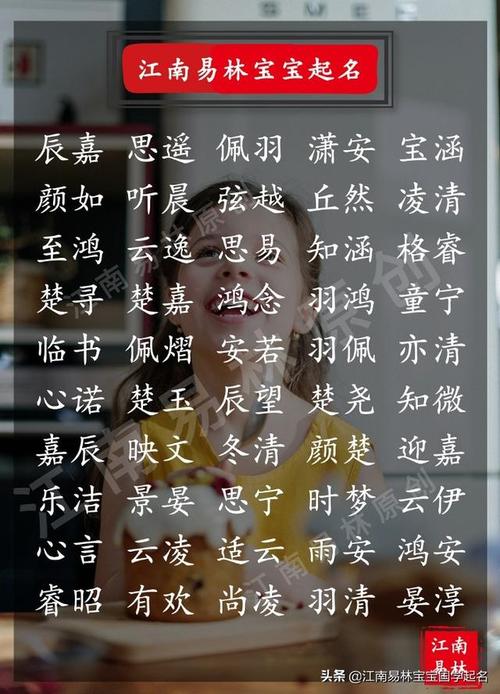 江南易林宝宝起名
辰嘉 思遥 佩羽 潇安 宝涵
颜如 听晨 弦越 丘然 凌清
至鸿 云逸 思易 知涵 格睿
楚寻 楚嘉 鸿念 羽鸿 童宁
临书 佩熠 安若 羽佩 亦清
心诺 楚玉 辰望 楚尧 知微
嘉辰 映文 冬清 颜楚 迎嘉
乐洁 景晏 思宁 时梦 云伊
心言 云凌 适云 雨安 鸿安
睿昭 有欢 尚凌 羽清 晏淳
江南易林原创
江南易林原创
江南易林原创
江南
易林
头条 @江南易林宝宝国学起名